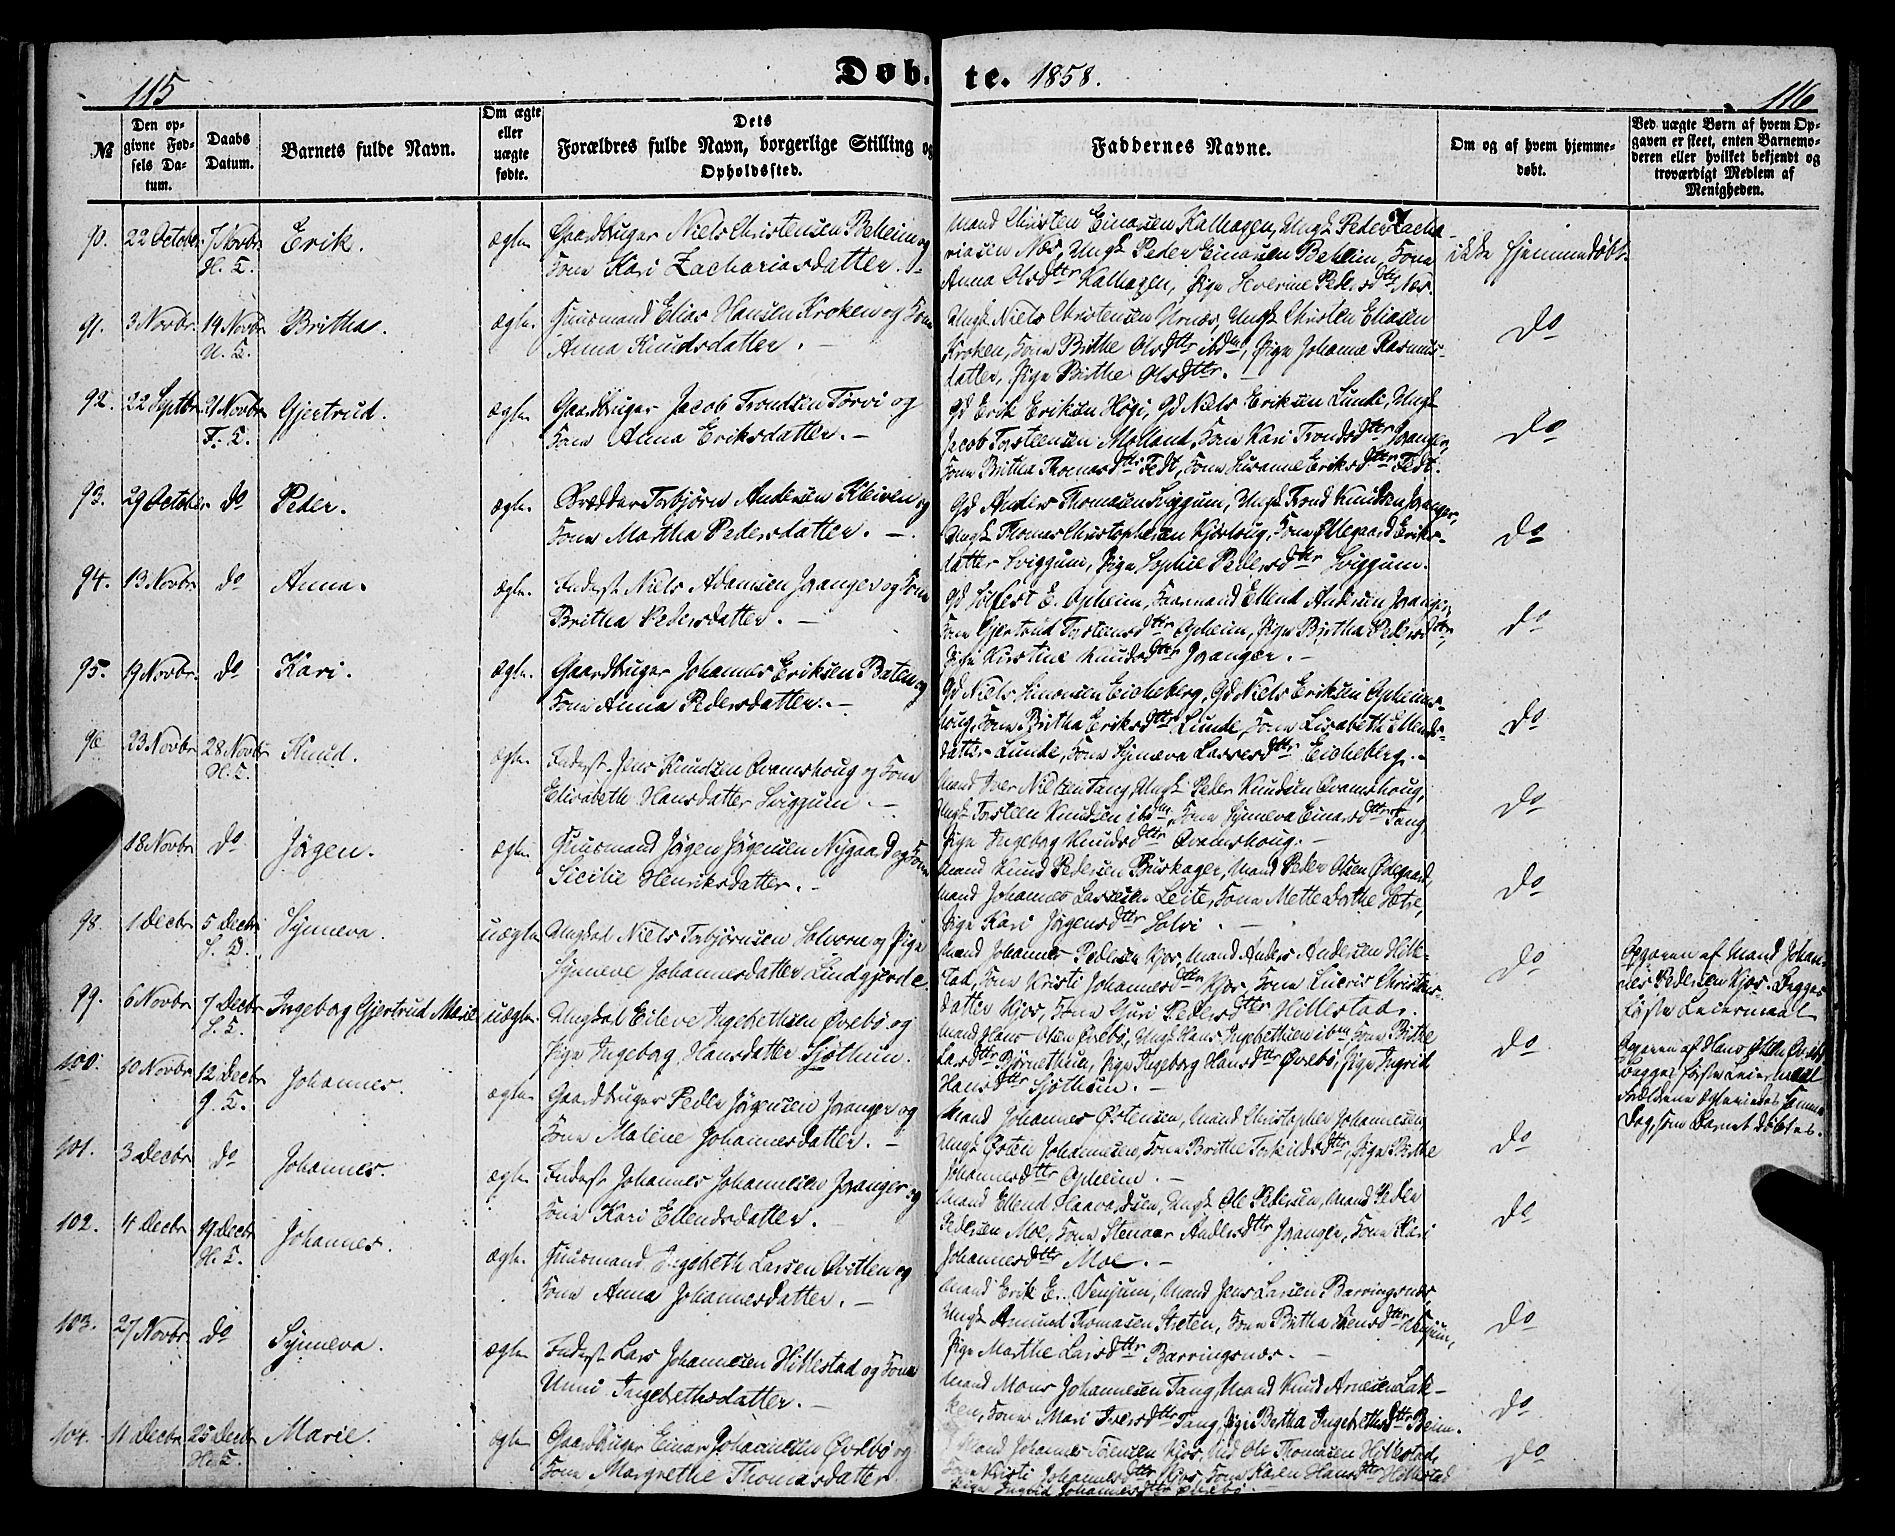 115
Døb-
te. 1858.
116
№
Den opgivne Fødsels Datum.
Daabs Datum.
Barnets fulde Navn.
Om ægte eller uægte fødte.
Dets Forældres fulde Navn, borgerlige Stilling og Opholdssted.
Faddernes Navne.
Om og af hvem hjemmedøbt.
Ved uægte Børn af hvem Opgaven er skeet, enten Barnemoderen eller hvilket bekjendt og troværdigt Medlem af Menigheden.
90. 22 October 7 Novbr Erik. ægte Gaardbruger Niels Christensen Beheim og
H. K. Kone Kari Zachariasdatter.
Mand Christen Einarsen Kalhagen, Ungk Peder Zacha-
riasen Næs, Ungk Peder Einarsen Beheim, Kone
Anna Olsdttr Kalhagen, Pige Severine Pedersdttr Næs.
ikke hjemmedøbt.
91. 3 Novbr. 14 Novbr Brithe. ægte Huusmand Elias Hansen Kroken og Kone
U. K. Anna Knudsdatter.
Ungk Niels Christensen Urnæs, Ungk Christen Eliasen
Kroken, Kone Brithe Olsdttr ibdm, Pige Johanne Rasmus-
datter, Pige Birthe Olsdttr.
do
92. 22 Septbr 21 Novbr Gjertrud. ægte Gaardbruger Jacob Trondsen Torvi og
F. K. Kone Anna Eriksdatter.
Gd Erik Eriksen Høgi, Gd Niels Eriksen Lunde, Ungk
Jacob Torsteensen Molland, Kone Kari Trondsdttr Kvanger,
Kone Britha Thomasdttr Fedt, Kone Susanne Eriksdttr Fedt.
do
93. 29 October do Peder. ægte Torbjørn Andersen Kleiven og
Kone Martha Pedersdatter.
Gd Anders Thomasen Sviggum, Ungk Trond Knudsen Kvanger,
Ungk Thomas Christophersen Kjørlaug, Kone Ollegaard Eriks-
datter Sviggum, Pige Sophie Pedersdttr Sviggum.
do
94. 13 Novbr do Anna. ægte Inderst Niels Adamsen og Kone
Britha Pedersdatter.
Gd Sølfest E. Opheim, Ellend Andersen
Kone Gjertrud Torsteensdttr Opheim, Pige Birtha Pedersdttr,
Pige Kirstine Knudsdttr
do
95. 19 Novbr. do Kari. ægte Gaardbruger Johannes Eriksen Baten og
Kone Anna Pedersdatter.
Gd Niels Simonsen Eicheberg, Gd Niels Eriksen Opheims-
houg, Kone Britha Eriksdttr Lunde, Kone Lisabeth Ellends-
datter Lunde, Kone Synneva Lassesdttr Eicheberg.
do
96 23 Novbr 28 Novbr Knud. ægte Inderst Jens Knudsen Qvamshoug og Kone
H. K. Elisabeth Hansdatter Sviggum.
Mand Iver Nielsen Tang, Ungk Peder Knudsen Qvamshoug,
Ungk Torsteen Knudsen ibdm, Kone Synneva Einarsdttr Tang
Pige Ingeborg Knudsdttr Qvamshoug.
do
18 Novbr do Jøgen. ægte Huusmand Jøgen Jøgensen Nygaard og Kone
Sicilie Henriksdatter.
Mand Knud Pedersen Buskager, Mand Peder Olsen Ødegaard,
Mand Johannes Lassesen Leite, Kone Mette Dorthe Sætre,
Pige Kari Jøgensdttr Solvi.
do
98. 1 Decbr 5 Decbr Synneva. uægte Ungkal Niels Torbjørnsen Solvorn og Pige
Synneve Johannesdatter Lindgjerde.
Mand Johannes Pedersen Kjos, Mand Anders Andersen Hille-
stad, Kone Kristi Johannesdttr Kjos, Kone Christens-
datter Kjos, Kone Guri Pedersdttr Hillestad.
do
Opgaven af Mand Johan-
nes Pedersen Kjos. Begges
første Leiermaal
99. 6 Novbr 7 Decbr Ingeborg Gjertrud Marie uægte Ungkal Eileve Ingebrethsen Øvrebø og
Pige Ingeborg Hansdatter Sjøthun.
Mand Hans Olsen Øvrebø, Ungk Hans Ingebrethsen ibdm, Kone Birthe
Larsdttr Bjørnethun, Pige Ingeborg Hansdttr Øvrebø, Pige Ingrid
Hansdttr Sjøthun.
do
Opgaven af Hans Olsen Øvrebø
Begges første Leiermaal
Forældrene samme
Dag, som Barnet døbtes.
100. 10 Novbr 12 Decbr Johannes. ægte Gaardbruger Peder Jørgensen og
Kone Malene Johannesdatter.
Mand Johannes Østensen, Mand Christopher Johannesen
Ungk Østen Johannesen, Kone Brithe Torkildsdttr, Pige Birthe
Johannesdttr Opheim.
do
101. 3 Decbr do Johannes. ægte Inderst Johannes Johannesen og
Kone Kari Ellendsdatter.
Mand Ellend Haavardsen, Ungk Ole Pedersen, Mand Peder
Pedersen Moe, Kone Andersdttr Kone Kari
Johannesdttr Moe.
do
102. 4 Decbr 19 Decbr Johannes. ægte Huusmand Ingebreth Larsen Qvitten og
H. K. Kone Anna Johannesdatter.
Mand Erik E. Venjum, Mand Jens Larsen Barringsnæs,
Ungk Amund Thomasen Støten, Kone Britha Venjum,
Pige Marthe Larsdttr Barringsnæs.
do
103. 27 Novbr do Synneva. ægte Inderst Lars Johannesen Hillestad og Kone
Unni Ingebrethsdatter.
Mand Mons Johannesen Tang, Mand Knud Arnesen Lak-
ken, Kone Mari Iversdttr Tang, Pige Bertha Ingebrethsdttr Beim.
do
104. 11 Decbr 25 Decbr Marie. ægte Gaardbruger Einar Johannesen Øvrebø og
H. K. Kone Margrethe Thomasdatter
Mand Johannes Kjos, Ole Thomasen Hillestad,
Kone Kristi Johannesdttr Kjos, Kone Karen Hansdttr Hillestad
Pige Ingrid Johannesdttr Øvrebø.
do